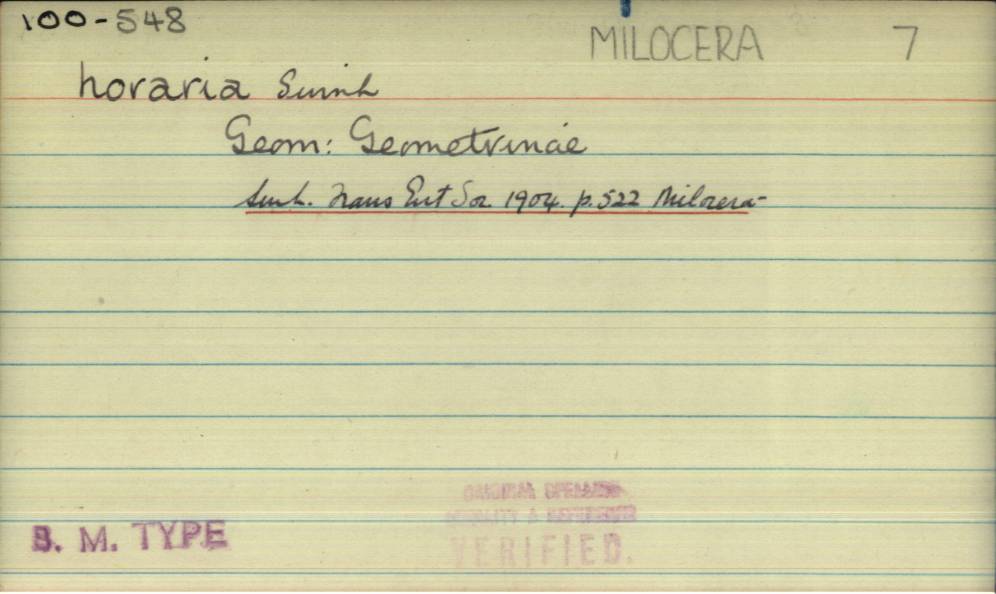 100-548
MILOCERA 7
horaria Swinh
Geom: Geometrinae
Swh. Trans Ent Soc. 1904. p.522 Milocera-
ORIGINAL SPELLING
& REFERENCE
VERIFIED.
B. M. TYPE